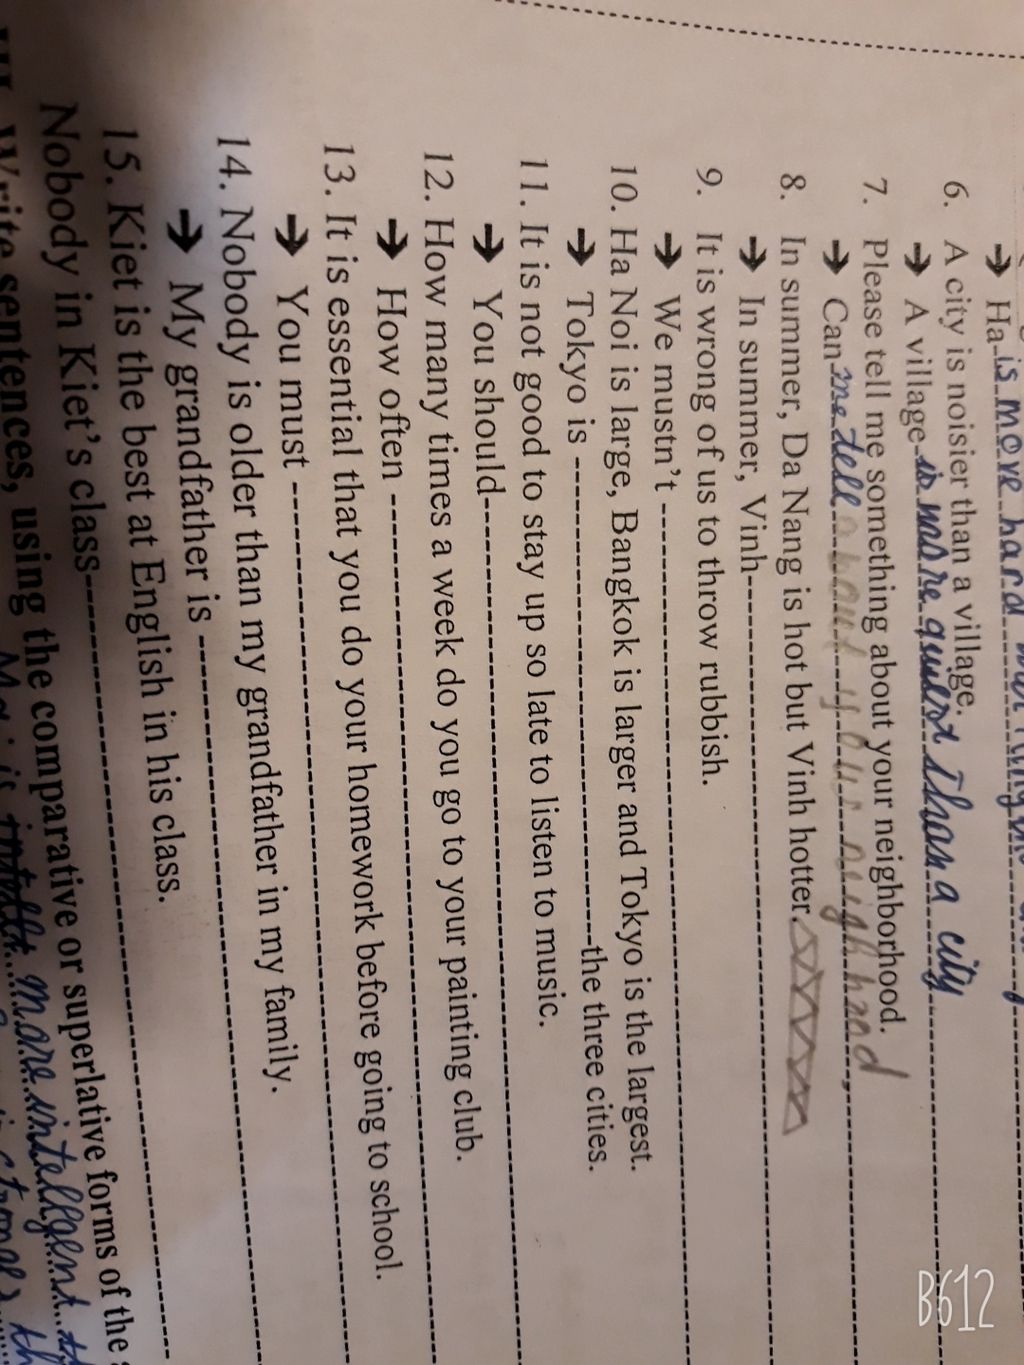 → Ha is more hard
6. A city is noisier than a village.
→ A village is more quiest than a city
7. Please tell me something about your neighborhood.
→ Can me tell about your neighhood,
8. In summer, Da Nang is hot but Vinh hotter.
→ In summer, Vinh
9. It is wrong of us to throw rubbish.
→ We mustn't
10. Ha Noi is large, Bangkok is larger and Tokyo is the largest.
→ Tokyo is the three cities.
11. It is not good to stay up so late to listen to music.
→ You should
12. How many times a week do you go to your painting club.
→ How often
13. It is essential that you do your homework before going to school.
→ You must
14. Nobody is older than my grandfather in my family.
→ My grandfather is
15. Kiet is the best at English in his class.
Nobody in Kiet's class
Write sentences, using the comparative or superlative forms of the
more intelligent
B612